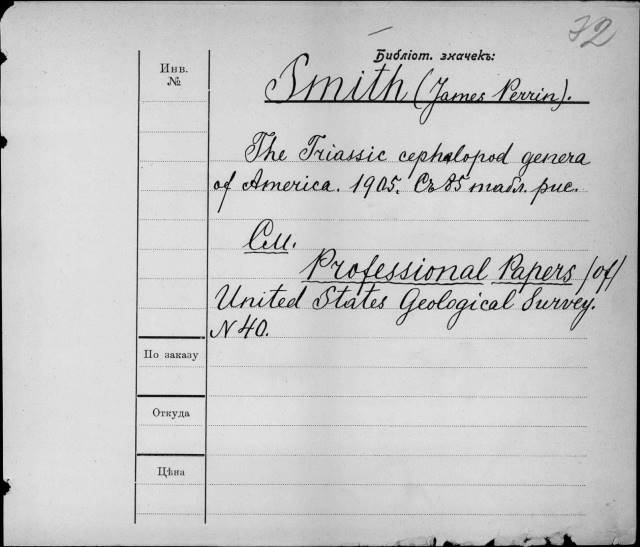 32
Библіот. значекъ:
Инв.
№
Smith (James Perrin).
The Triassic cephalopod genera
of America. 1905. Съ 85 табл. рис.
См.
Professional Papers /of/
United States Geological Survey.
N 40.
По заказу
Откуда
Цѣна